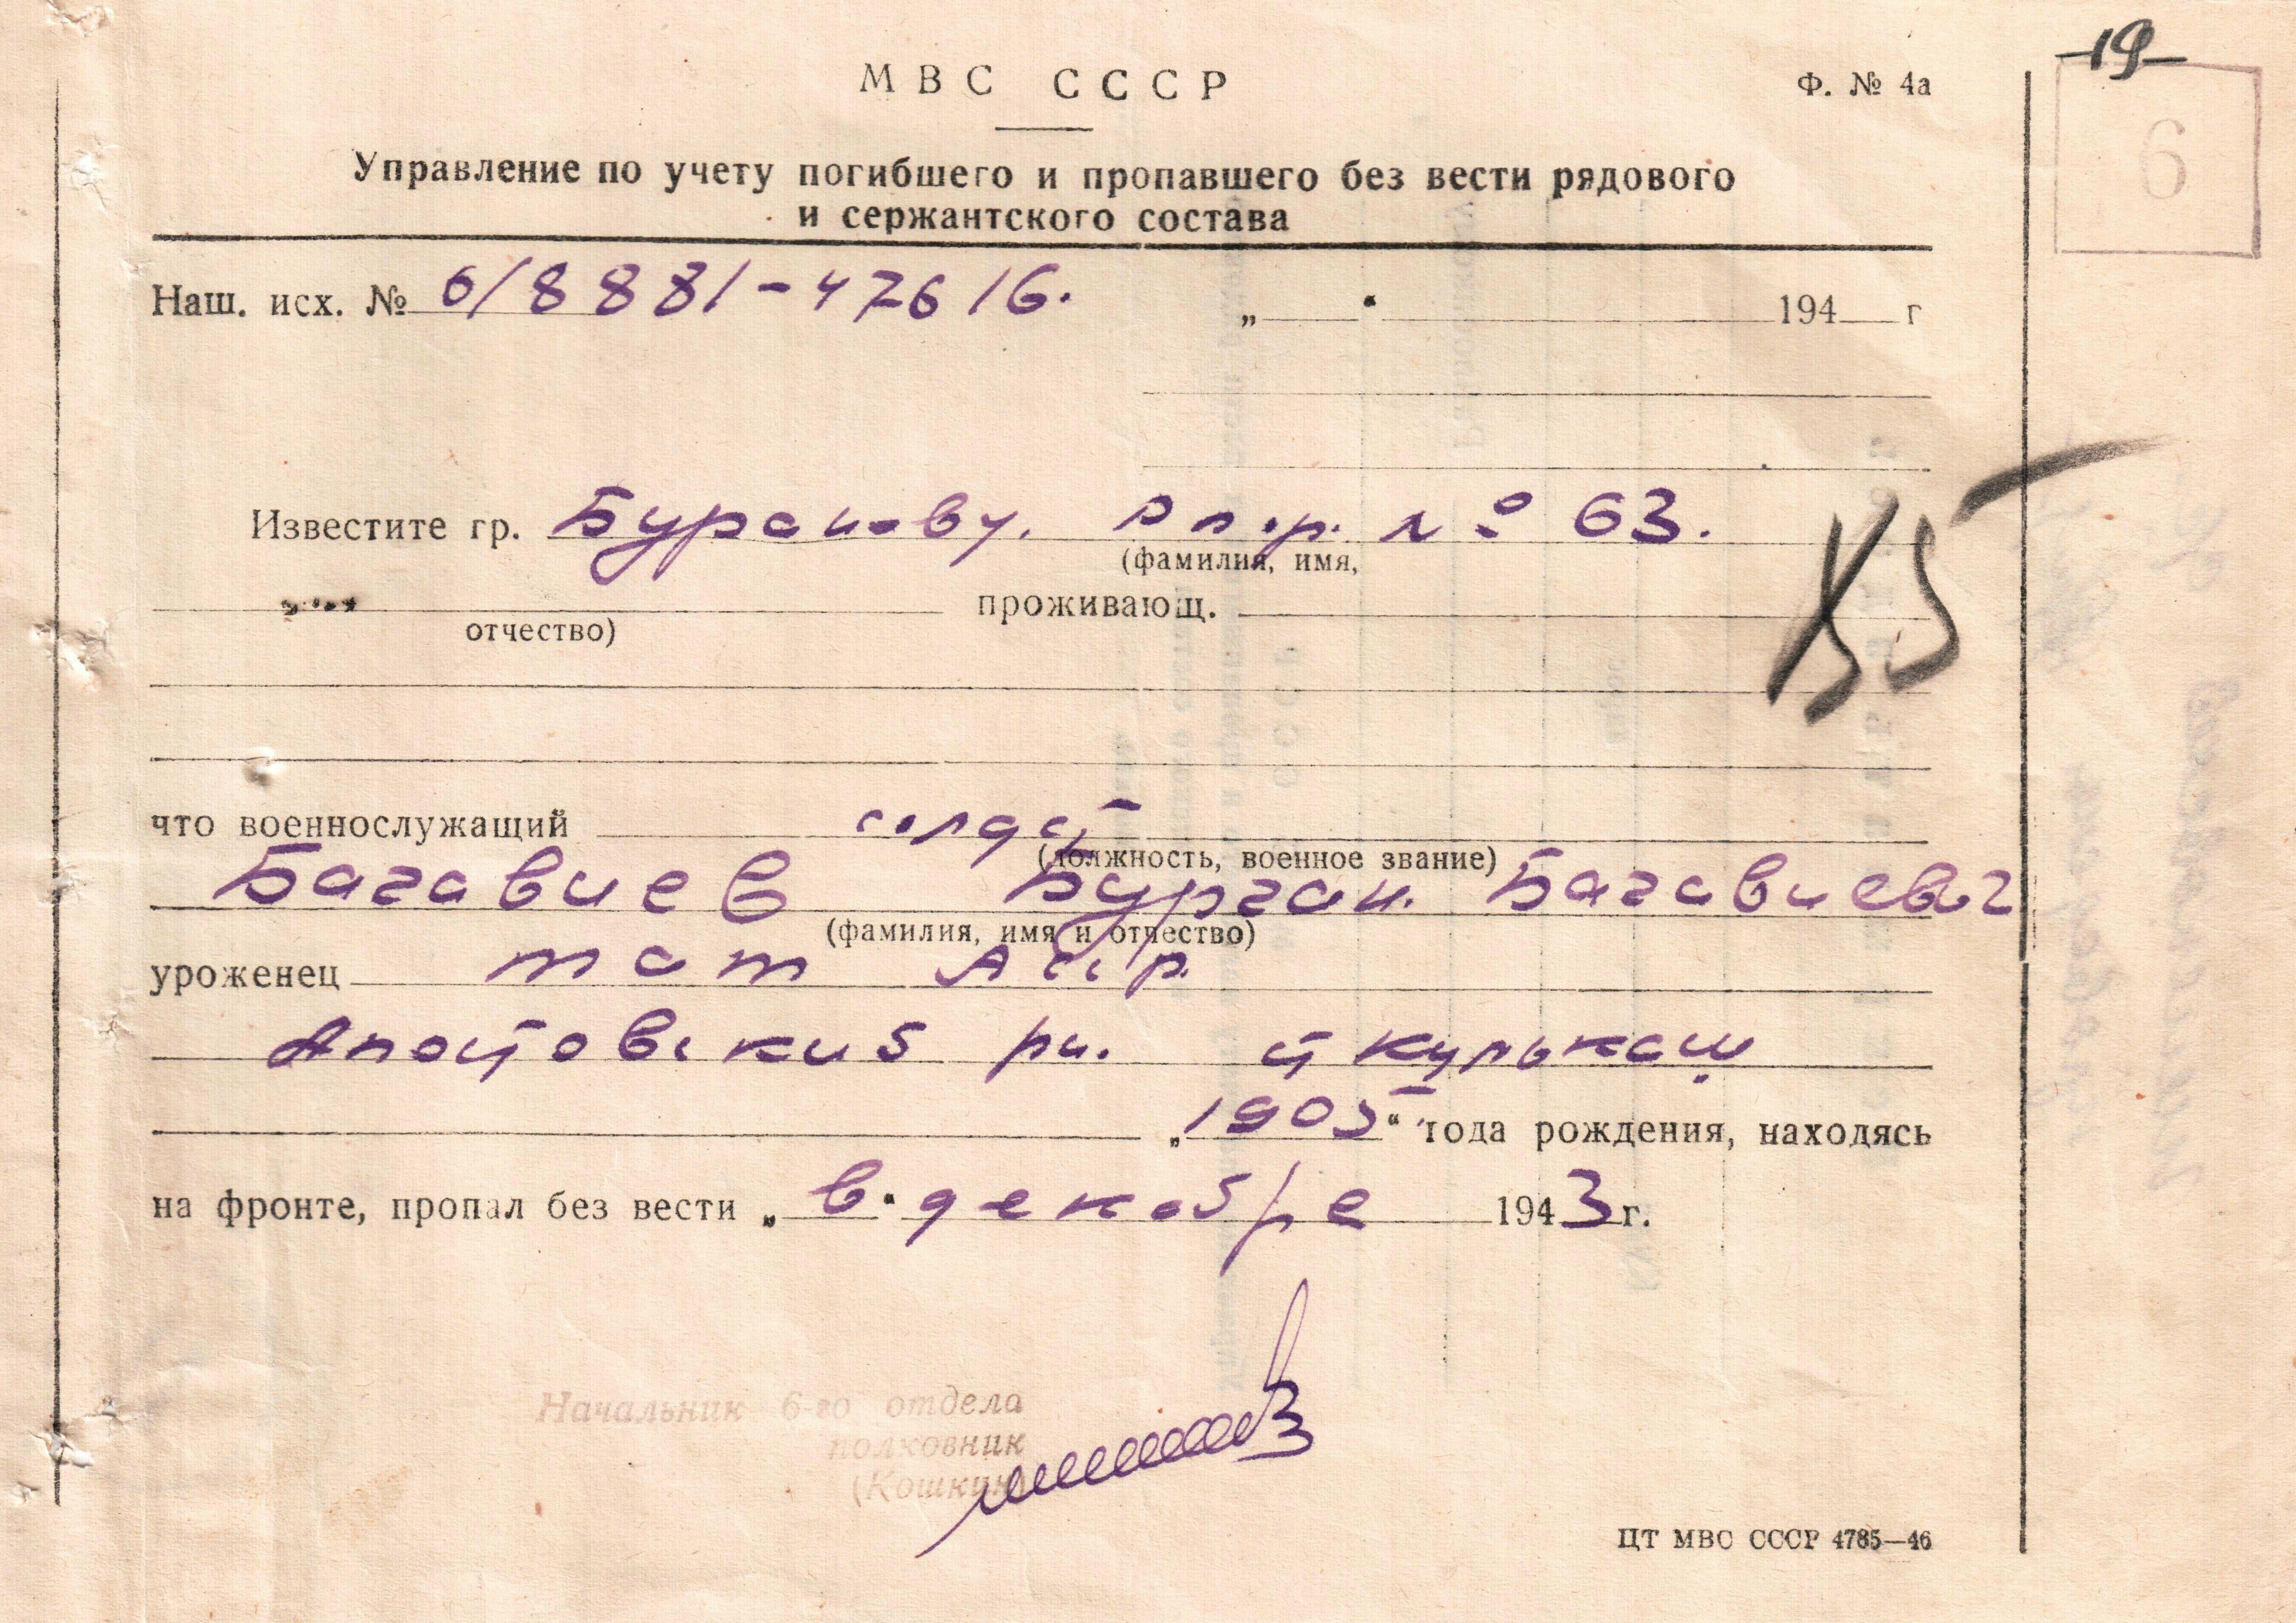 -19-
МВС СССР
Ф. № 4а
6
Управление по учету погибшего и пропавшего без вести рядового
и сержантского состава
Наш. исх. № 6/8881-47616.
„ “ 194 г
Известите гр. № 63.
(фамилия, имя,
отчество) проживающ.
что военнослужащий солдат
(должность, военное звание)
Багавиев Бурган Багавиевич
(фамилия, имя и отчество)
уроженец тат Асср.
Апастовский рн. с Кулькаш
„1905“ года рождения, находясь
на фронте, пропал без вести „в“ декабре 1943 г.
Начальник 6-го отдела
полковник
(Кошкин)
ЦТ МВС СССР 4785—46